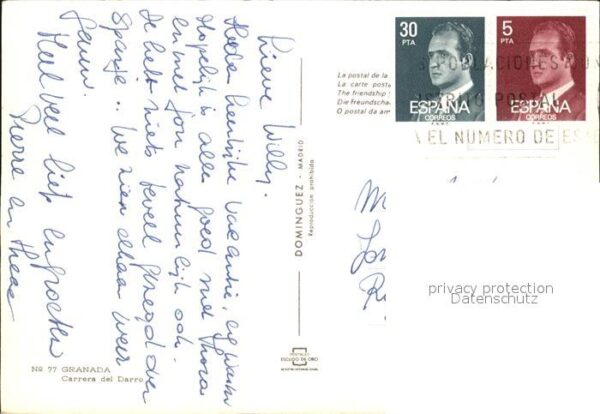 Lieve Willy.
Heden heerlijke vacantie,
Hopelijk is alles goed met
en met jou natuurlijk ook.
Je hebt niets teveel gezegd over
Spanje .. We zien elkaar weer
Heel veel liefs en groeten
Pierre en
Nº 77 GRANADA
Carrera del Darro
DOMINGUEZ - MADRID
Reproducción prohibida
POSTALES
ESCUDO DE ORO
La postal de la
La carte posta
The friendship
Die Freundscha
O postal da am
30
PTA
ESPAÑA
CORREOS
5
PTA
ESPAÑA
CORREOS
POBLACIONES
POSTAL
EL NUMERO DE
privacy protection
Datenschutz